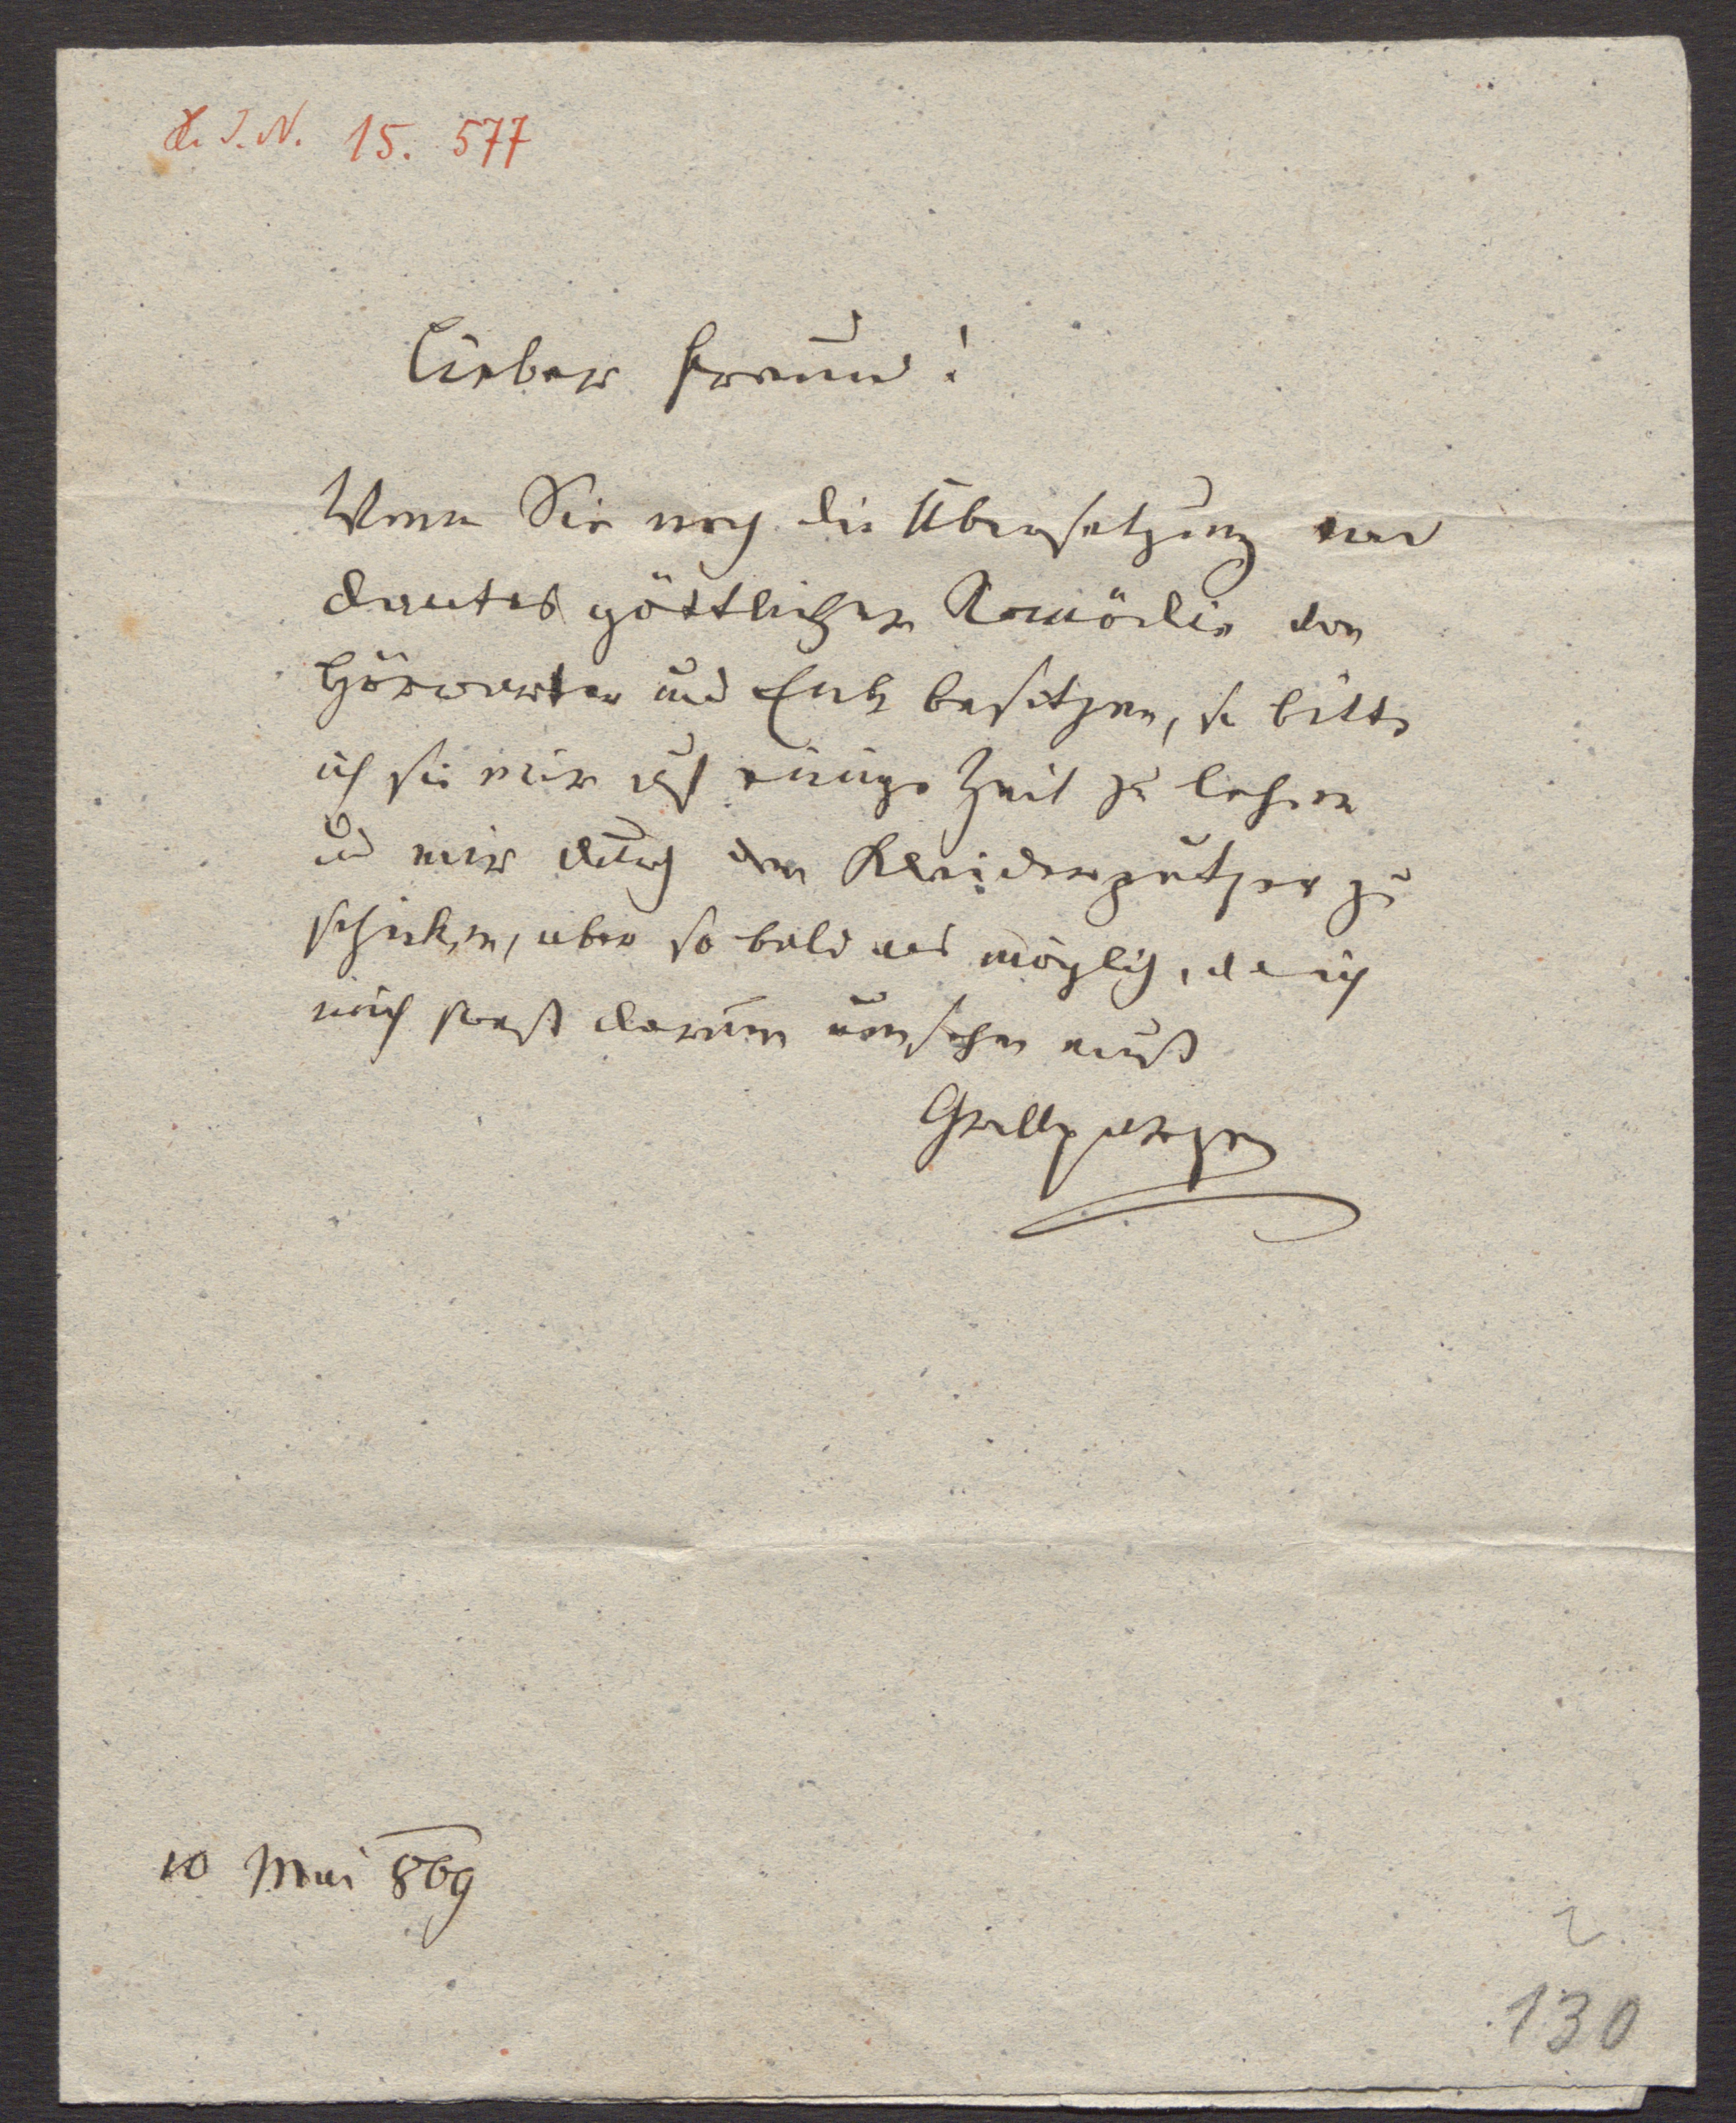 H. I. N. 15. 577
Lieber Freund!
Wenn Sie noch die Übersetzung von
Dantes göttlicher Komödie von
Hörwarter und Enk besitzen, so bitte
ich sie mir auf einige Zeit zu leihen
und mir durch den Kleiderputzer zu
schicken, aber so bald als möglich, da ich
mich sonst darum umsehen muß
Grillparzer
10 Mai 869
2
130